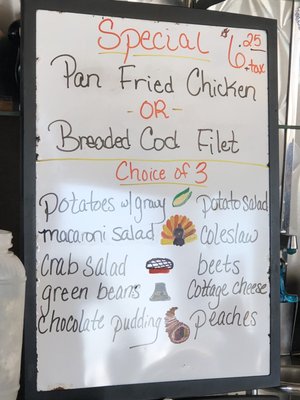 Special $6.25 + tax
Pan Fried Chicken
- OR -
Breaded Cod Filet
Choice of 3
potatoes w/gravy potato salad
macaroni salad coleslaw
crab salad beets
green beans cottage cheese
chocolate pudding peaches